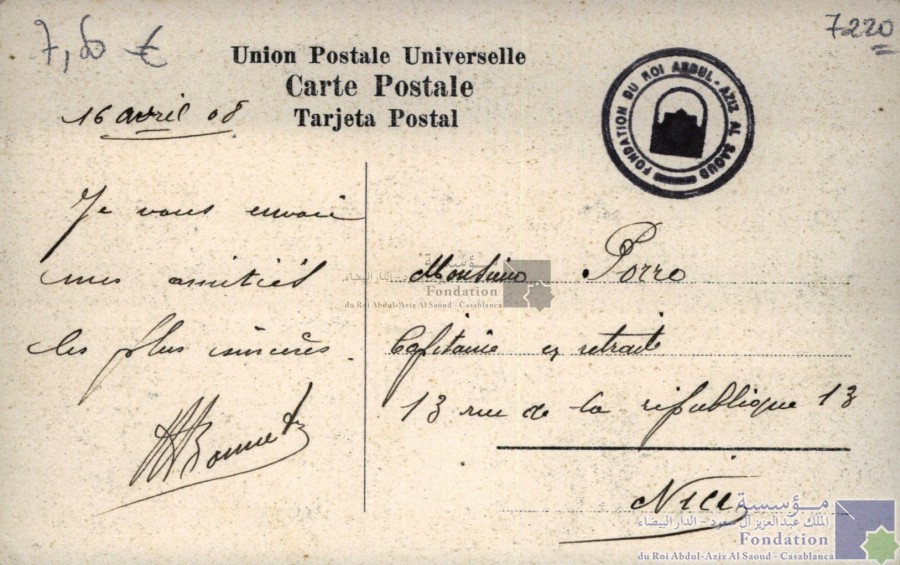 7,50 €
7220
Union Postale Universelle
Carte Postale
Tarjeta Postal
FONDATION DU ROI ABDUL-AZIZ AL SAOUD
16 avril 08
Je vous envoie
mes amitiés
les plus sincères.
Bonnet
Monsieur Porro
Capitaine en retraite
13 rue de la république 13
Nice
مؤسسة
الملك عبد العزيز آل سعود - الدار البيضاء
Fondation
du Roi Abdul-Aziz Al Saoud - Casablanca
مؤسسة
الملك عبد العزيز آل سعود - الدار البيضاء
Fondation
du Roi Abdul-Aziz Al Saoud - Casablanca